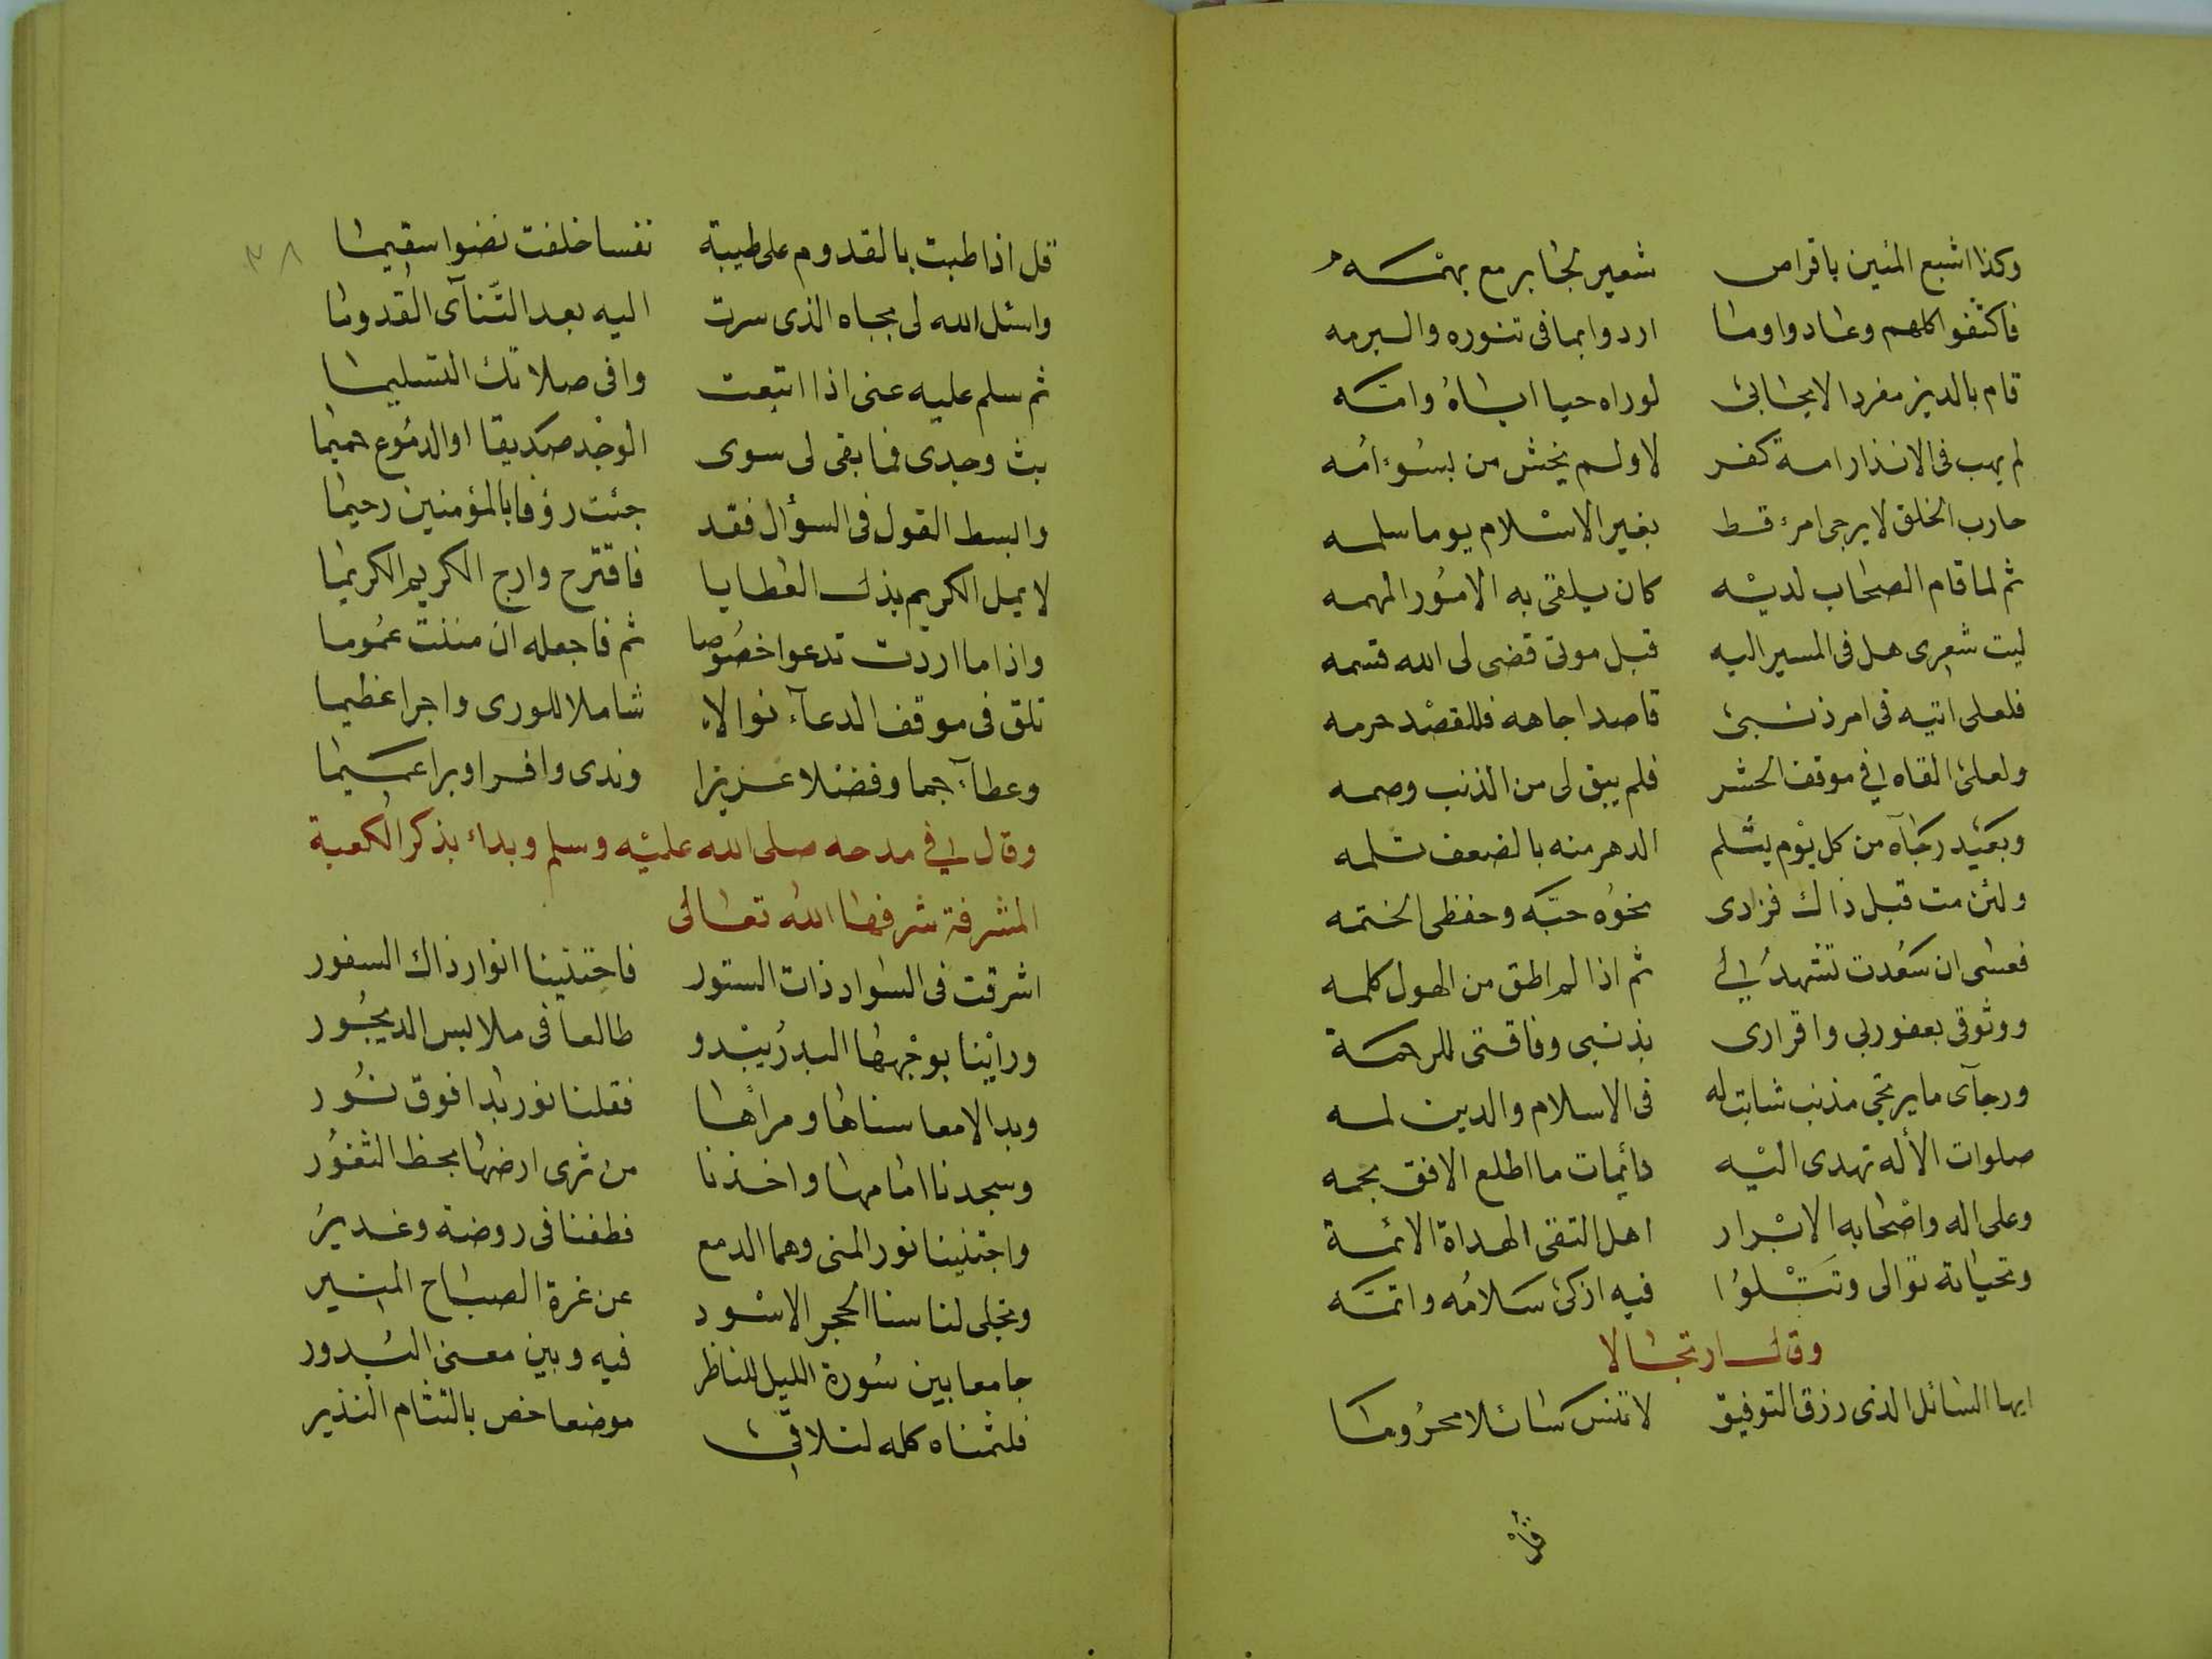 وكذا اشبع المئين باقراص شعير لجابر مع بهمه
فاكتفوا كلهم وعادوا وما اردوا بما فى تنوره والبرمه
قام بالدين مفردا لا يحابى لوراه حيا اباه وامه
لم يهب فى الانذار امة كفر لا ولم يخش من بسوء امه
حارب الخلق لا يرجى امرء قط بغير الاسلام يوما سلمه
ثم لما قام الصحاب لديه كان يلقى به الامور المهمه
ليت شعرى هل فى المسير اليه قبل موتى قضى لى الله قسمه
فلعلى اتيه فى امر ذنبى قاصدا جاهه فللقصد حرمه
ولعلى القاه فى موقف الحشر فلم يبق لى من الذنب وصمه
وبعيد رجآه من كل يوم يثلم الدهر منه بالضعف ثلمه
ولئن مت قبل ذاك فزادى نحوه حبه وحفظى الختمه
فعسى ان سعدت تشهد لى ثم اذا لم اطق من الهول كلمه
ووثوقى بعفو ربى واقرارى بذنبى وفاقتى للرحمة
ورجآى ما يرتجى مذنب شابت له فى الاسلام والدين لمه
صلوات الأله تهدى اليه دائمات ما اطلع الافق نجمه
وعلى اله واصحابه الابرار اهل التقى الهداة الائمة
وتحياته توالى وتتلوا فيه ازكى سلامه واتمه
وقال ارتجالا
ايها السائل الذى رزق التوفيق لا تنس سائلا محروما
قل
٣٨
قل اذا طبت بالقدوم على طيبة نفسا خلفت نضوا سقيما
واسئل الله لى بجاه الذى سرت اليه بعد التنآى القدوما
ثم سلم عليه عنى اذا اتبعت وافى صلاتك التسليما
بث وجدى فما بقى لى سوى الوجد صديقا او الدموع حميما
وابسط القول فى السؤال فقد جئت رؤفا بالمؤمنين رحيما
لا يمل الكريم بذل العطايا فاقترح وارج الكريم الكريما
واذا ما اردت تدعوا خصوصا ثم فاجعله ان مننت عموما
تلق فى موقف الدعآء نوالا شاملا للورى واجرا عظيما
وعطآء جما وفضلا عزيزا وندى وافرا وبرا عميما
وقال فى مدحه صلى الله عليه وسلم وبداء بذكر الكعبة
المشرفة شرفها الله تعالى
اشرقت فى السواد ذات الستور فاجتنينا انوار ذاك السفور
وراينا بوجهها البدر يبدو طالعا فى ملابس الديجور
وبدا لامعا سناها ومراها فقلنا نور بدا فوق نور
وسجدنا امامها واخذنا من ثرى ارضها بحظ الثغور
واجتنينا نور المنى وهما الدمع فطفنا فى روضة وغدير
وتجلى لنا سنا الحجر الاسود عن غرة الصباح المنير
جامعا بين سورة الليل للناظر فيه وبين معنى البدور
فلثمناه كله لتلاقى موضعا خص بالتثام النذير